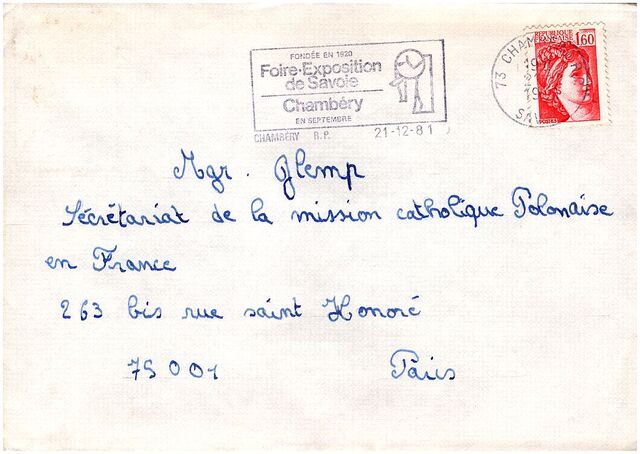 FONDÉE EN 1920
Foire-Exposition
de Savoie
Chambéry
EN SEPTEMBRE
CHAMBERY R.P. 21-12-81
73 CHAM
SAV
REPUBLIQUE
FRANÇAISE 1,60
POSTES
Mgr. Glemp
Sécrétariat de la mission catholique Polonaise
en France
263 bis rue saint Honoré
75001 Paris